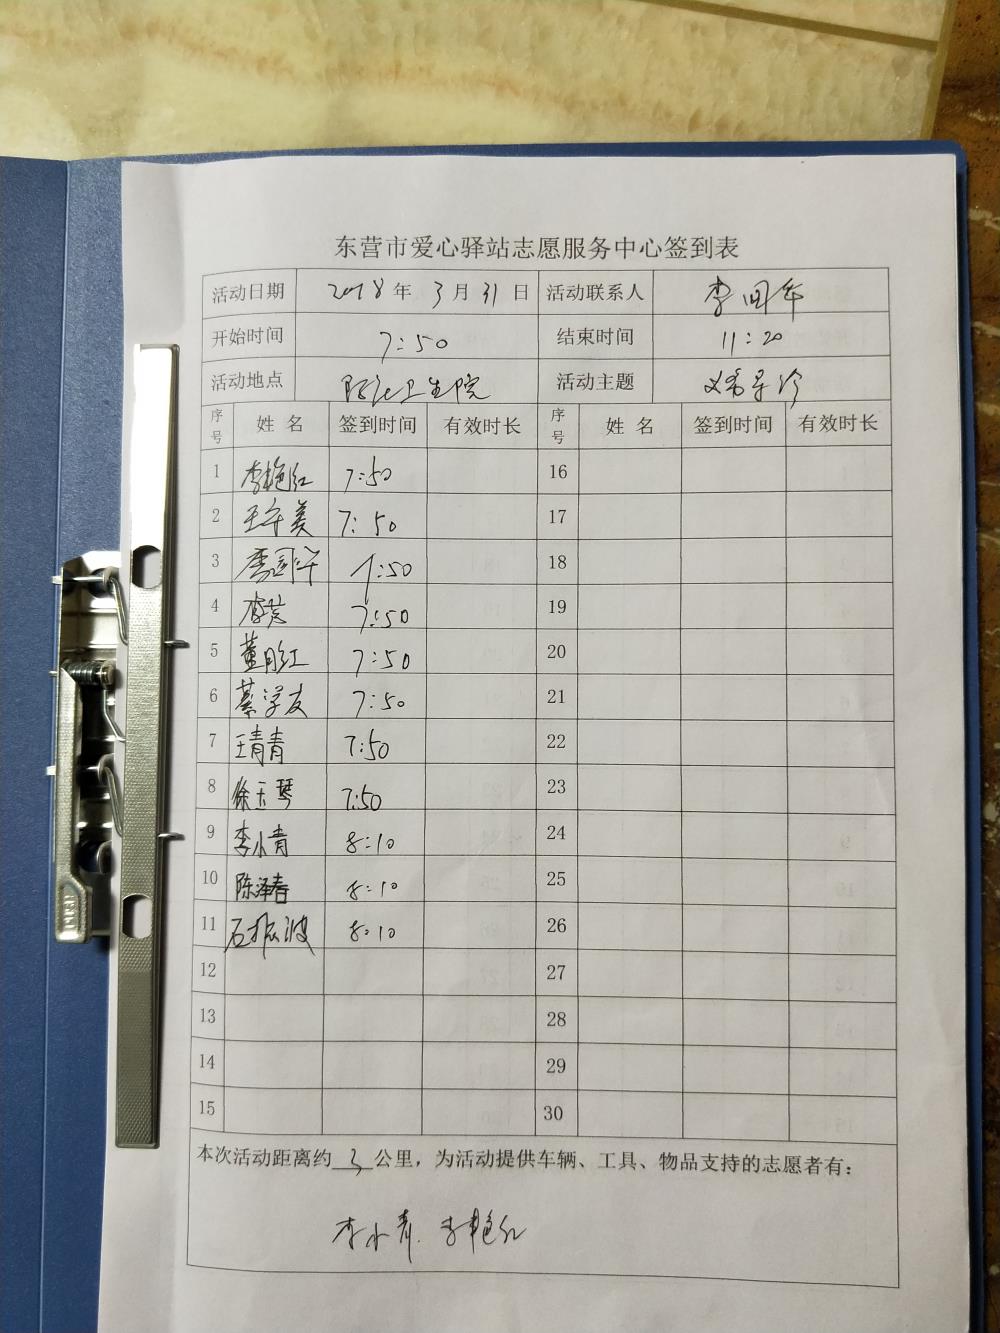 东营市爱心驿站志愿服务中心签到表
活动日期 2018年 3月 31日 活动联系人 李国华
开始时间 7:50 结束时间 11:20
活动地点 卫生院 活动主题 义务导诊
序号 姓名 签到时间 有效时长 序号 姓名 签到时间 有效时长
1 李艳红 7:50 16
2 王守美 7:50 17
3 李国华 7:50 18
4 李芸 7:50 19
5 董月红 7:50 20
6 綦学友 7:50 21
7 王青青 7:50 22
8 徐玉琴 7:50 23
9 李小青 8:10 24
10 陈泽春 8:10 25
11 石振波 8:10 26
12 27
13 28
14 29
15 30
本次活动距离约 3 公里，为活动提供车辆、工具、物品支持的志愿者有：
李小青. 李艳红